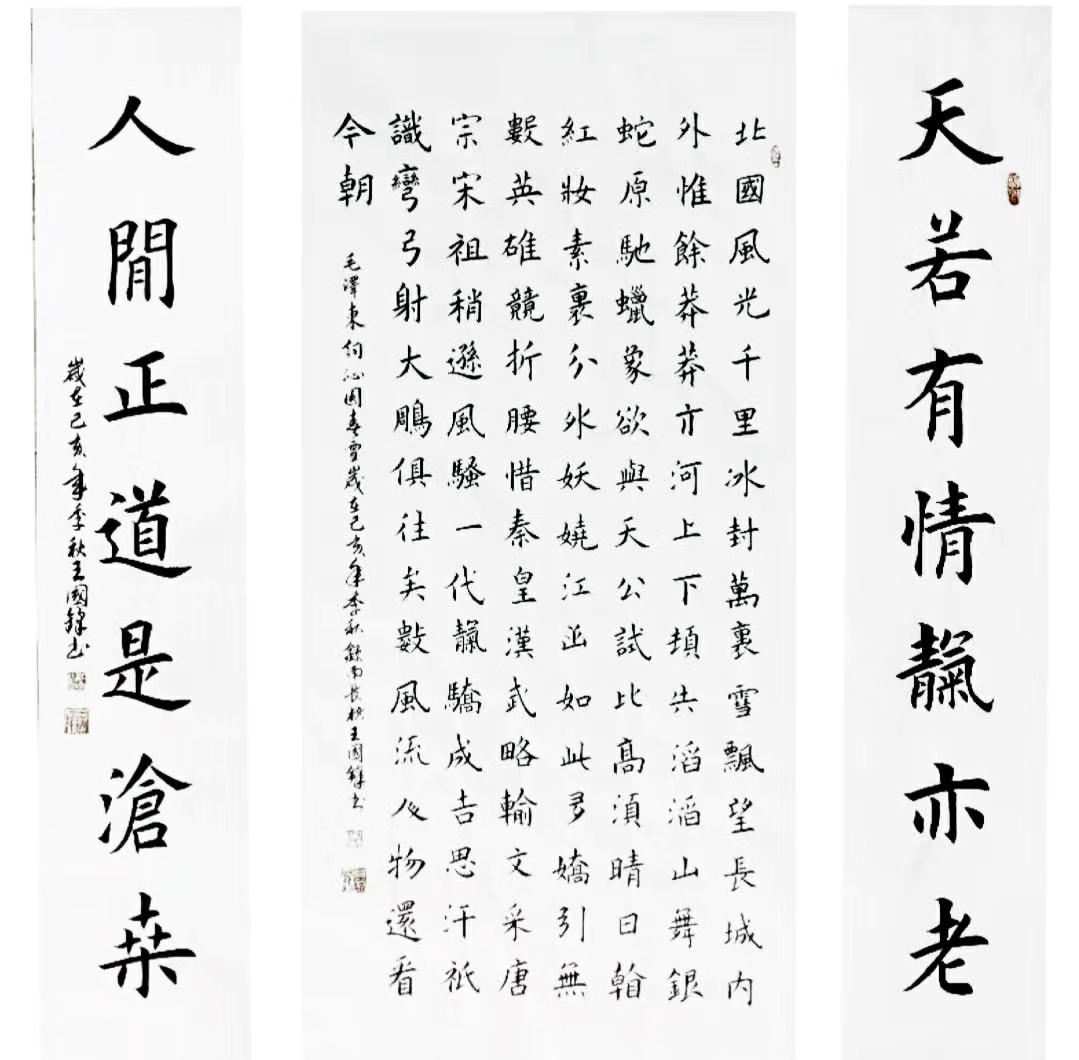 天若有情靝亦老
北國風光千里冰封萬裏雪飄望長城内
外惟餘莽莽亣河上下頓失滔滔山舞銀
蛇原馳蠟象欲與天公試比高須晴日
紅妝素裏分外妖嬈江山如此多嬌引無
數英雄競折腰惜秦皇漢武略輸文采唐
宗宋祖稍遜風騷一代靝驕成吉思汗祇
識彎弓射大鵰俱往矣數風流人物還看
今朝
毛澤東詞沁園春雪歲在己亥年季秋王國鋒書
人閒正道是滄桒
歲在己亥年季秋王國鋒書